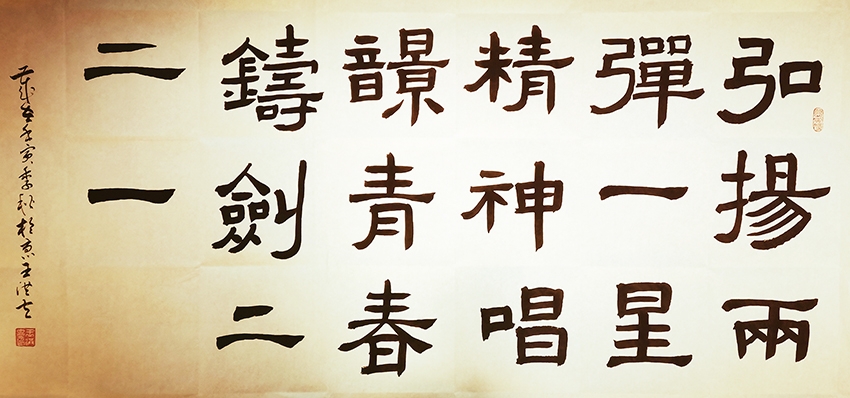 弘揚兩
彈一星
精神唱
響青春
鑄劍二
二一
歲在壬寅季秋於京王洪